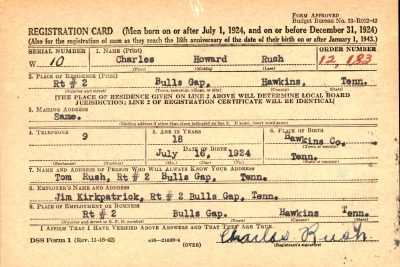 Form Approved
Budget Bureau No. 33-R012-42
REGISTRATION CARD (Men born on or after July 1, 1924, and on or before December 31, 1924)
(Also for the registration of men as they reach the 18th anniversary of the date of their birth on or after January 1, 1943.)
SERIAL NUMBER 1. NAME (Print) ORDER NUMBER
W 10 Charles Howard Rush 12,183
(First) (Middle) (Last)
2. PLACE OF RESIDENCE (Print)
Rt # 2 Bulls Gap, Hawkins, Tenn.
[THE PLACE OF RESIDENCE GIVEN ON LINE 2 ABOVE WILL DETERMINE LOCAL BOARD
JURISDICTION; LINE 2 OF REGISTRATION CERTIFICATE WILL BE IDENTICAL]
3. MAILING ADDRESS
Same.
[Mailing address if other than place indicated on line 2. If same, insert word same]
4. TELEPHONE 5. AGE IN YEARS 6. PLACE OF BIRTH
9 18 Hawkins Co.
DATE OF BIRTH
July 16, 1924 Tenn.
(Exchange) (Number) (Mo.) (Day) (Yr.) (State or country)
7. NAME AND ADDRESS OF PERSON WHO WILL ALWAYS KNOW YOUR ADDRESS
Tom Rush, Rt # 2 Bulls Gap, Tenn.
8. EMPLOYER'S NAME AND ADDRESS
Jim Kirkpatrick, Rt # 2 Bulls Gap, Tenn.
9. PLACE OF EMPLOYMENT OR BUSINESS
Rt # 2 Bulls Gap. Hawkins Tenn.
(Number and street or R. F. D. number) (Town) (County) (State)
I AFFIRM THAT I HAVE VERIFIED ABOVE ANSWERS AND THAT THEY ARE TRUE.
DSS Form 1 (Rev. 11-16-42) (OVER) Charles Rush
(Registrant's signature)